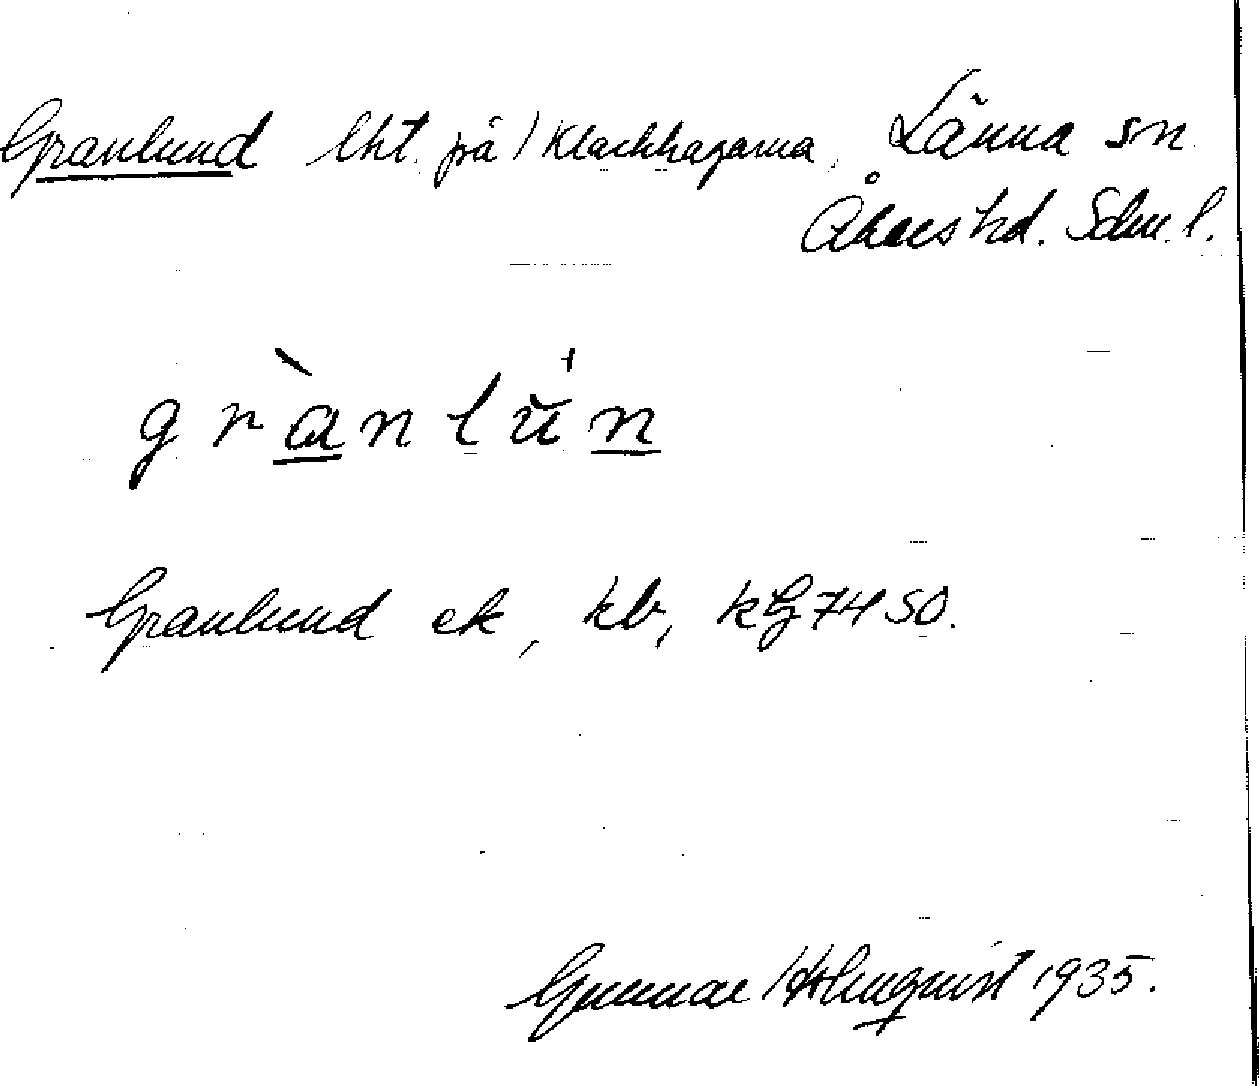 Granlund lht. på Klackhagarna, Länna sn
Åkers hd. Sdm. l.
gràn lŭn
Granlund ek, kb, kg 74 SO.
Gunnar Holmquist 1935.